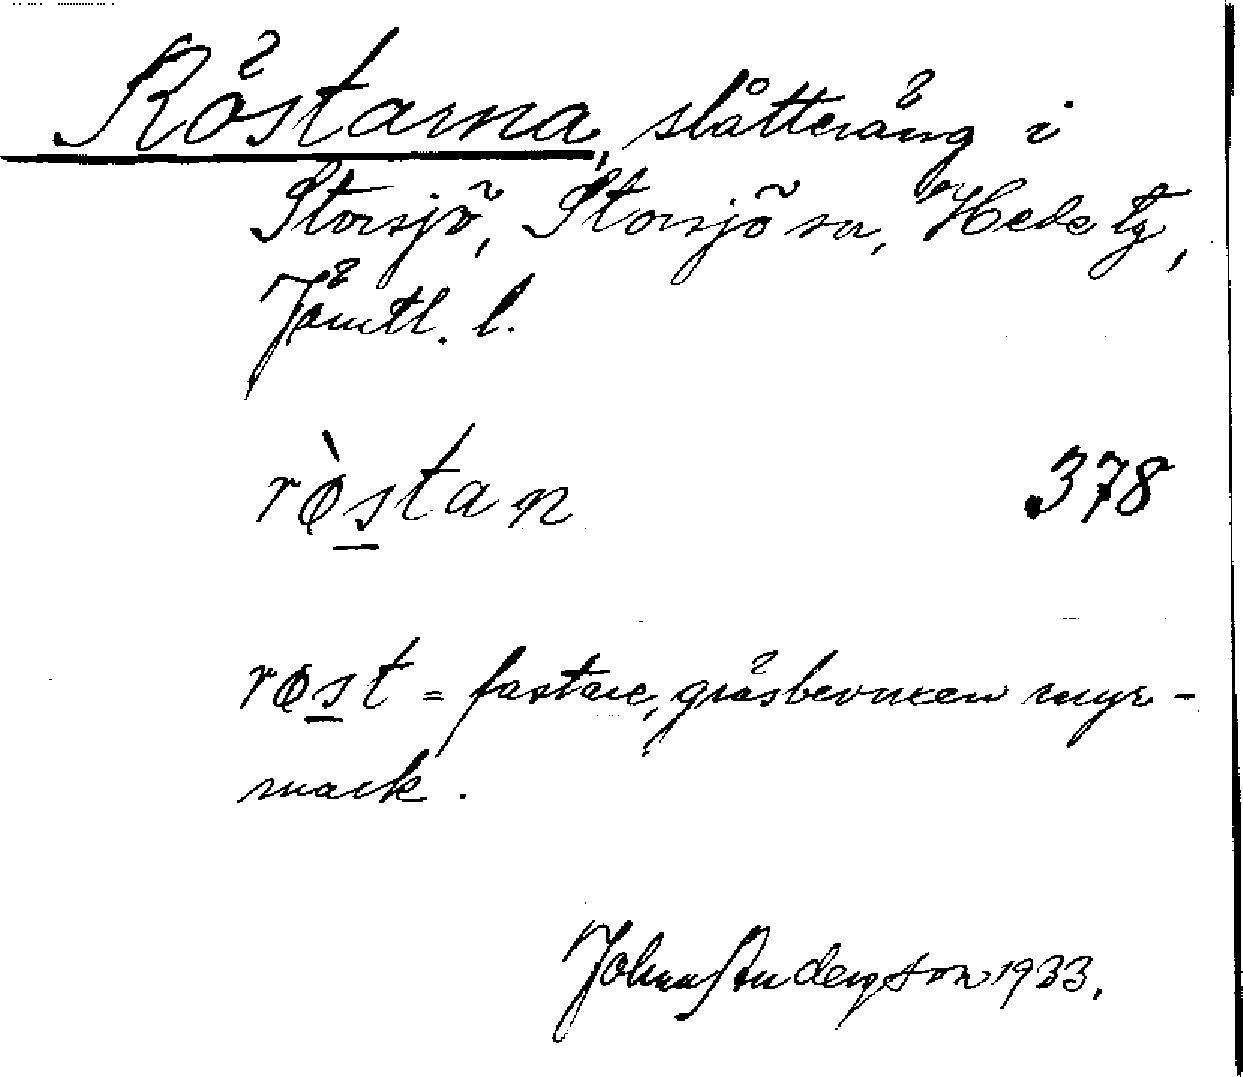 Röstarna, slåtteräng i
Storsjö, Storsjö sn, Hede tg,
Jämtl. l.
rø̀stan 378
røst = fastare, gräsbevuxen myr-
mark.
Johan Anderson 1933.